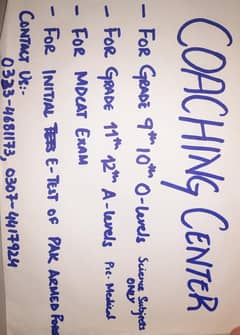 COACHING CENTER
- FOR GRADE 9th 10th O-levels Science Subjects ONLY
- FOR GRADE 11th 12th A-levels Pre-Medical
- FOR MDCAT EXAM
- FOR INITIAL E-TEST OF PAK ARMED
CONTACT US:-
0323-4681173, 0307-4417924